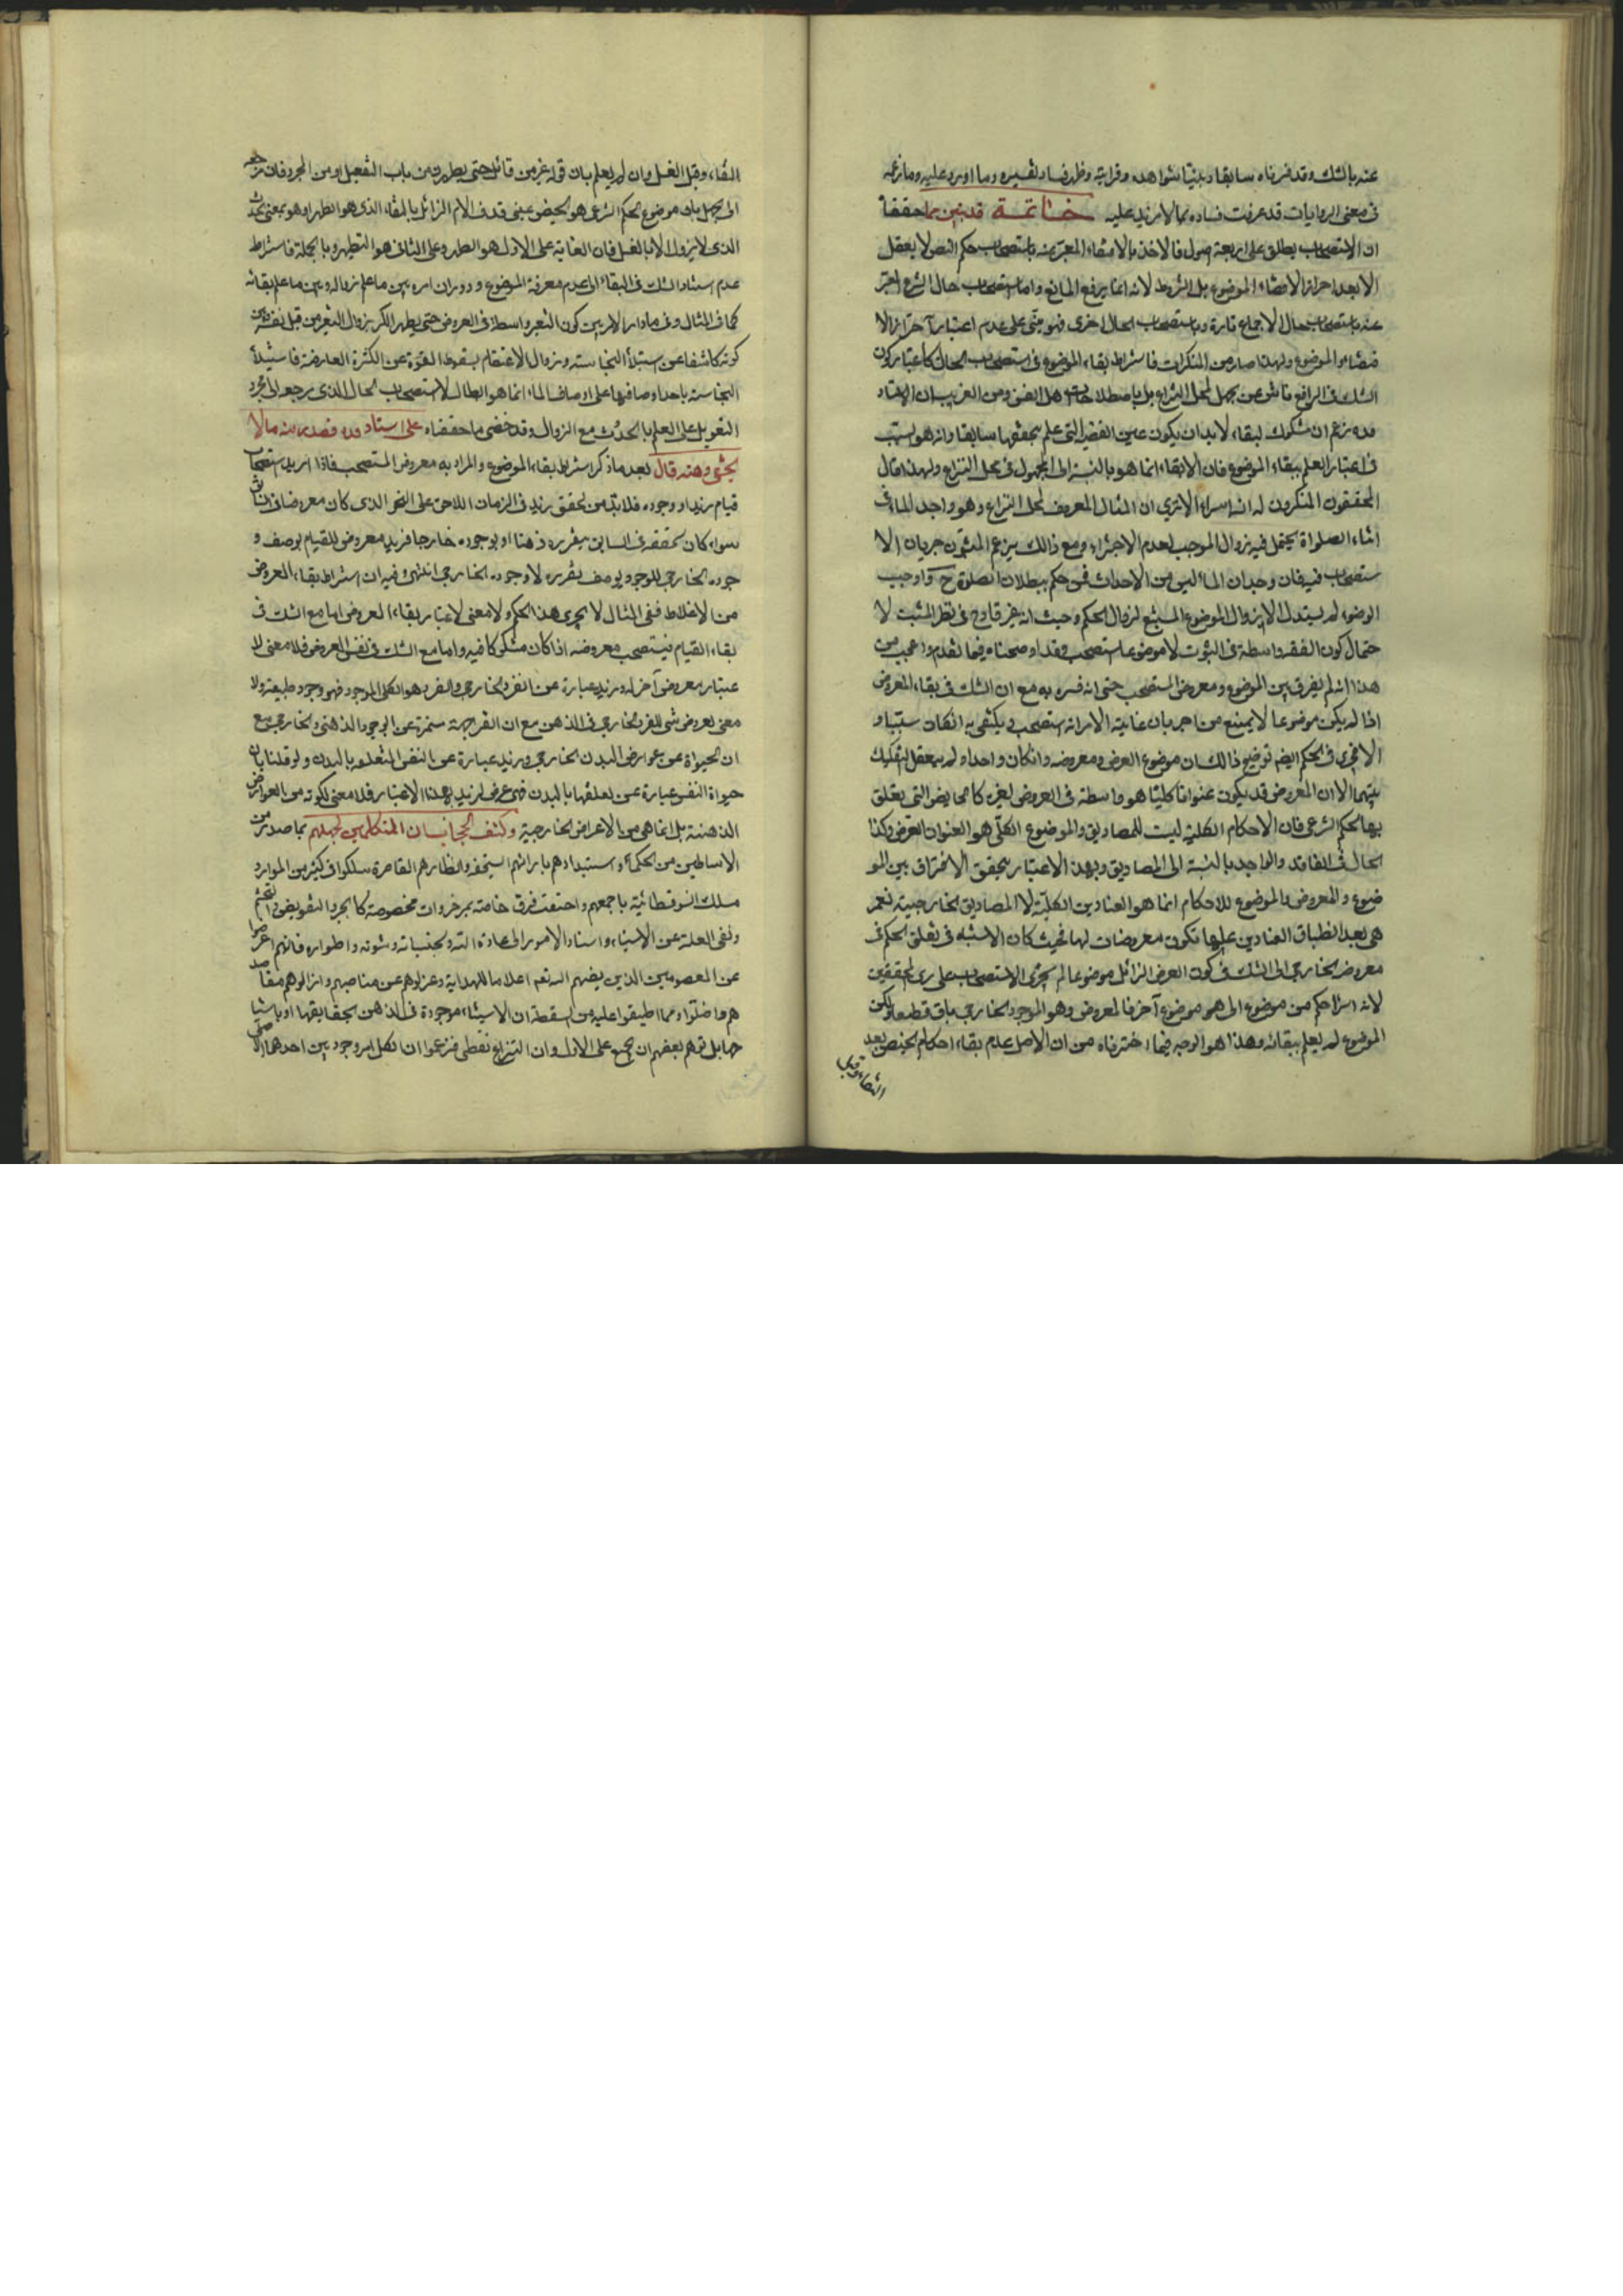 عنه بالشك وقد فسرناه سابقا وبينا شواهده وقرايته وظهر فساد تفسيره وما اورد عليه وما زعمه
فى معنى الروايات قد عرفت فساده بما لا مزيد عليه خاتمة قد تبين مما حققنا
ان الاستصحاب يطلق على اربعة اصول فالاخذ بالاقتضاء المعبر عنه باستصحاب حكم النص لا يعقل
الا بعد احراز الاقتضاء الموضوع بل الشروط لانه انما يرفع المانع واما استصحاب حال الشرع المعبر
عنه باستصحاب حال الاجماع تارة وباستصحاب الحال اخرى فهو مبنى على عدم اعتبار احراز الا
قتضاء والموضوع ولهذا صار من المنكرات فاشتراط بقاء الموضوع فى استصحاب الحال كاعتبار كون
الشك فى الرافع ناش عن جهل لمحل النزاع بل باصطلاحات اهل الفن ومن الغريب ان الاستاد
قده زعم ان مشكوك البقاء لابد ان يكون عين القضية التى علم بتحققها سابقا وانه هو السبب
فى اعتبار العلم ببقاء الموضوع فان الابقاء انما هو بالنسبة الى المجهول فى محل النزاع ولهذا قال
المحققون المنكرون له انه اسراء الا ترى ان المثال المعروف لمحل النزاع وهو واجد الماء فى
اثناء الصلواة يحتمل فيه زوال الموجب لعدم الاجتزاء ومع ذالك يزعم المثبتون جريان الا
ستصحاب فيه فان وجدان الماء ليس من الاحداث فمن حكم ببطلان الصلوة ح واوجب
الوضوء لم يستدل الا بزوال الموضوع المستتبع لزوال الحكم وحيث انه غير قادح فى نظر المثبت لا
حتمال كون الفقد واسطة فى الثبوت لا موضوعا استصحب وقد اوضحناه فيما تقدم واعجب من
هذا انه لم يفرق بين الموضوع ومعروض المستصحب حتى انه فسره به مع ان الشك فى بقاء المعروض
اذا لم يكن موضوعا لا يمنع من اجريان غاية الامر انه استصحب ويكتفى به انكان سببيا و
الا فجرى فى الحكم ايضا توضيح ذالك ان موضوع العرض ومعروضه وانكان واحدا ولم يعقل التفكيك
بينهما الا ان المعروض قد يكون عنوانا كليا هو واسطة فى العروض لغيره كالمحايض التى يتعلق
بها الحكم الشرعى فان الاحكام الكلية ليست للمصاديق والموضوع الكلى هو العنوان العرض وكذا
الحال فى الفاقد والواجد بالنسبة الى المصاديق وبهذا الاعتبار يتحقق الافتراق بين المو
ضوع والمعروض والموضوع للاحكام انما هو العناوين الكلية لا المصاديق الخارجية نعم
هى بعد انطباق العناوين عليها تكون معروضات لها فحيث كان الاشتباه فى تعلق الحكم فى
معروضه الخارجى الى الشك فى كون العرض الزائل موضوعا لم يجرى الاستصحاب على راى المحققين
لانه اسراء حكم من موضوع الى موضوع آخر فالمعروض وهو الموجود الخارجى باق قطعا ولكن
الموضوع لم يعلم ببقائه وهذا هو الوجه فيما اخترناه من ان الاصل عدم بقاء احكام الحيض بعد
النقاء وقبل
النقاء وقبل الغسل وان لم يعلم بان قوله عز من قائل حتى يطهرن من باب التفعيل او من المجرد فان مرجعه
الى الجهل بان موضوع الحكم الشرعى هو الحيض بمعنى قذف الدم الزائل بالنقاء الذى هو الطهر او هو بمعنى الحدث
الذى لا يزول الا بالغسل فان الغاية على الاول هو الطهر وعلى الثانى هو التطهر وبالجملة فاشتراط
عدم استناد الشك فى البقاء الى عدم معرفة الموضوع ودوران امره بين ما علم زواله وبين ما علم بقائه
كما فى المثال وفى ما دار الامر بين كون التغير واسطة فى العروض حتى يطهر الكر بزوال التغير من قبل نفسه وبين
كونه كاشفا عن استيلاء النجاسة وزوال الاعتصام بسقوط القوة عن الكثرة العارضة فاستيلاء
النجاسة باحد اوصافها على اوصاف الماء انما هو ابطال لاستصحاب الحال الذى مرجعه الى مجرد
التعويل على العلم بالحدث مع الزوال وقد خفى ما حققناه على استاد قده فصدر منه ما لا
يخفى وهنه قال بعد ما ذكر اشتراط بقاء الموضوع والمراد به معروض المستصحب فاذا اريد استصحاب
قيام زيد او وجوده فلابد من تحقق زيد فى الزمان اللاحق على النحو الذى كان معروضا فى السابق
سواء كان تحققه فى السابق بتقرره ذهنا او بوجوده خارجا فزيد معروض للقيام بوصف و
جوده الخارجى وللوجود بوصف تقرره لا وجوده الخارجى انتهى وفيه ان اشتراط بقاء المعروض
من الاغلاط ففى المثال لا يجرى هذا الحكم ولا معنى لاعتبار بقاء المعروض اما مع الشك فى
بقاء القيام فيستصحب معروضه اذا كان مشكوكا فيه واما مع الشك فى نفس العروض فلا معنى لا
عتبار معروض آخر له وزيد عبارة عن الفرد الخارجى والفرد هو الكلى الموجود فهو وجود طبيعة ولا
معنى لعروض شى للفرد الخارجى فى الذهن مع ان التقرر جهة منتزعة عن الوجود الذهنى والخارجى مع
ان الحيواة عن عوارض البدن الخارجى وزيد عبارة عن النفس المتعلقه بالبدن ولو قلنا بان
حيواة النفس عبارة عن تعلقها بالبدن فهى عرض لزيد بهذا الاعتبار فلا معنى لكونه من العوارض
الذهنية بل انما هى من الاعراض الخارجية وكشف الحجاب ان المتكلمين لجهلهم بما صدر من
الاساطين من الحكماء واستبدادهم بارائهم السخيفه وانظارهم القاصرة سلكوا فى كثير من الموارد
مسلك السوفسطائية باجمعهم واختصت فرق خاصة بمزخرفات مخصوصة كالجبر والتفويض والتجسم
ونفى العلة عن الاشياء واسناد الامور الى عادة الله ولجنسيانه وشونه واطواره فانهم اعرضوا
عن المعصومين الذين نصبهم الله تعم اعلاما للهداية وعزلوهم عن مناصبهم وانزلوهم مقاصد
هم فاضلوا ومما اطبقوا عليه من السفسطة ان الاشياء موجودة فى الذهن بحقايقها او باشبا
حها بل توهم بعضهم ان يجمع على الاول وان النزاع لفظى فزعموا ان لكل امر وجودين احدهما الاصلى